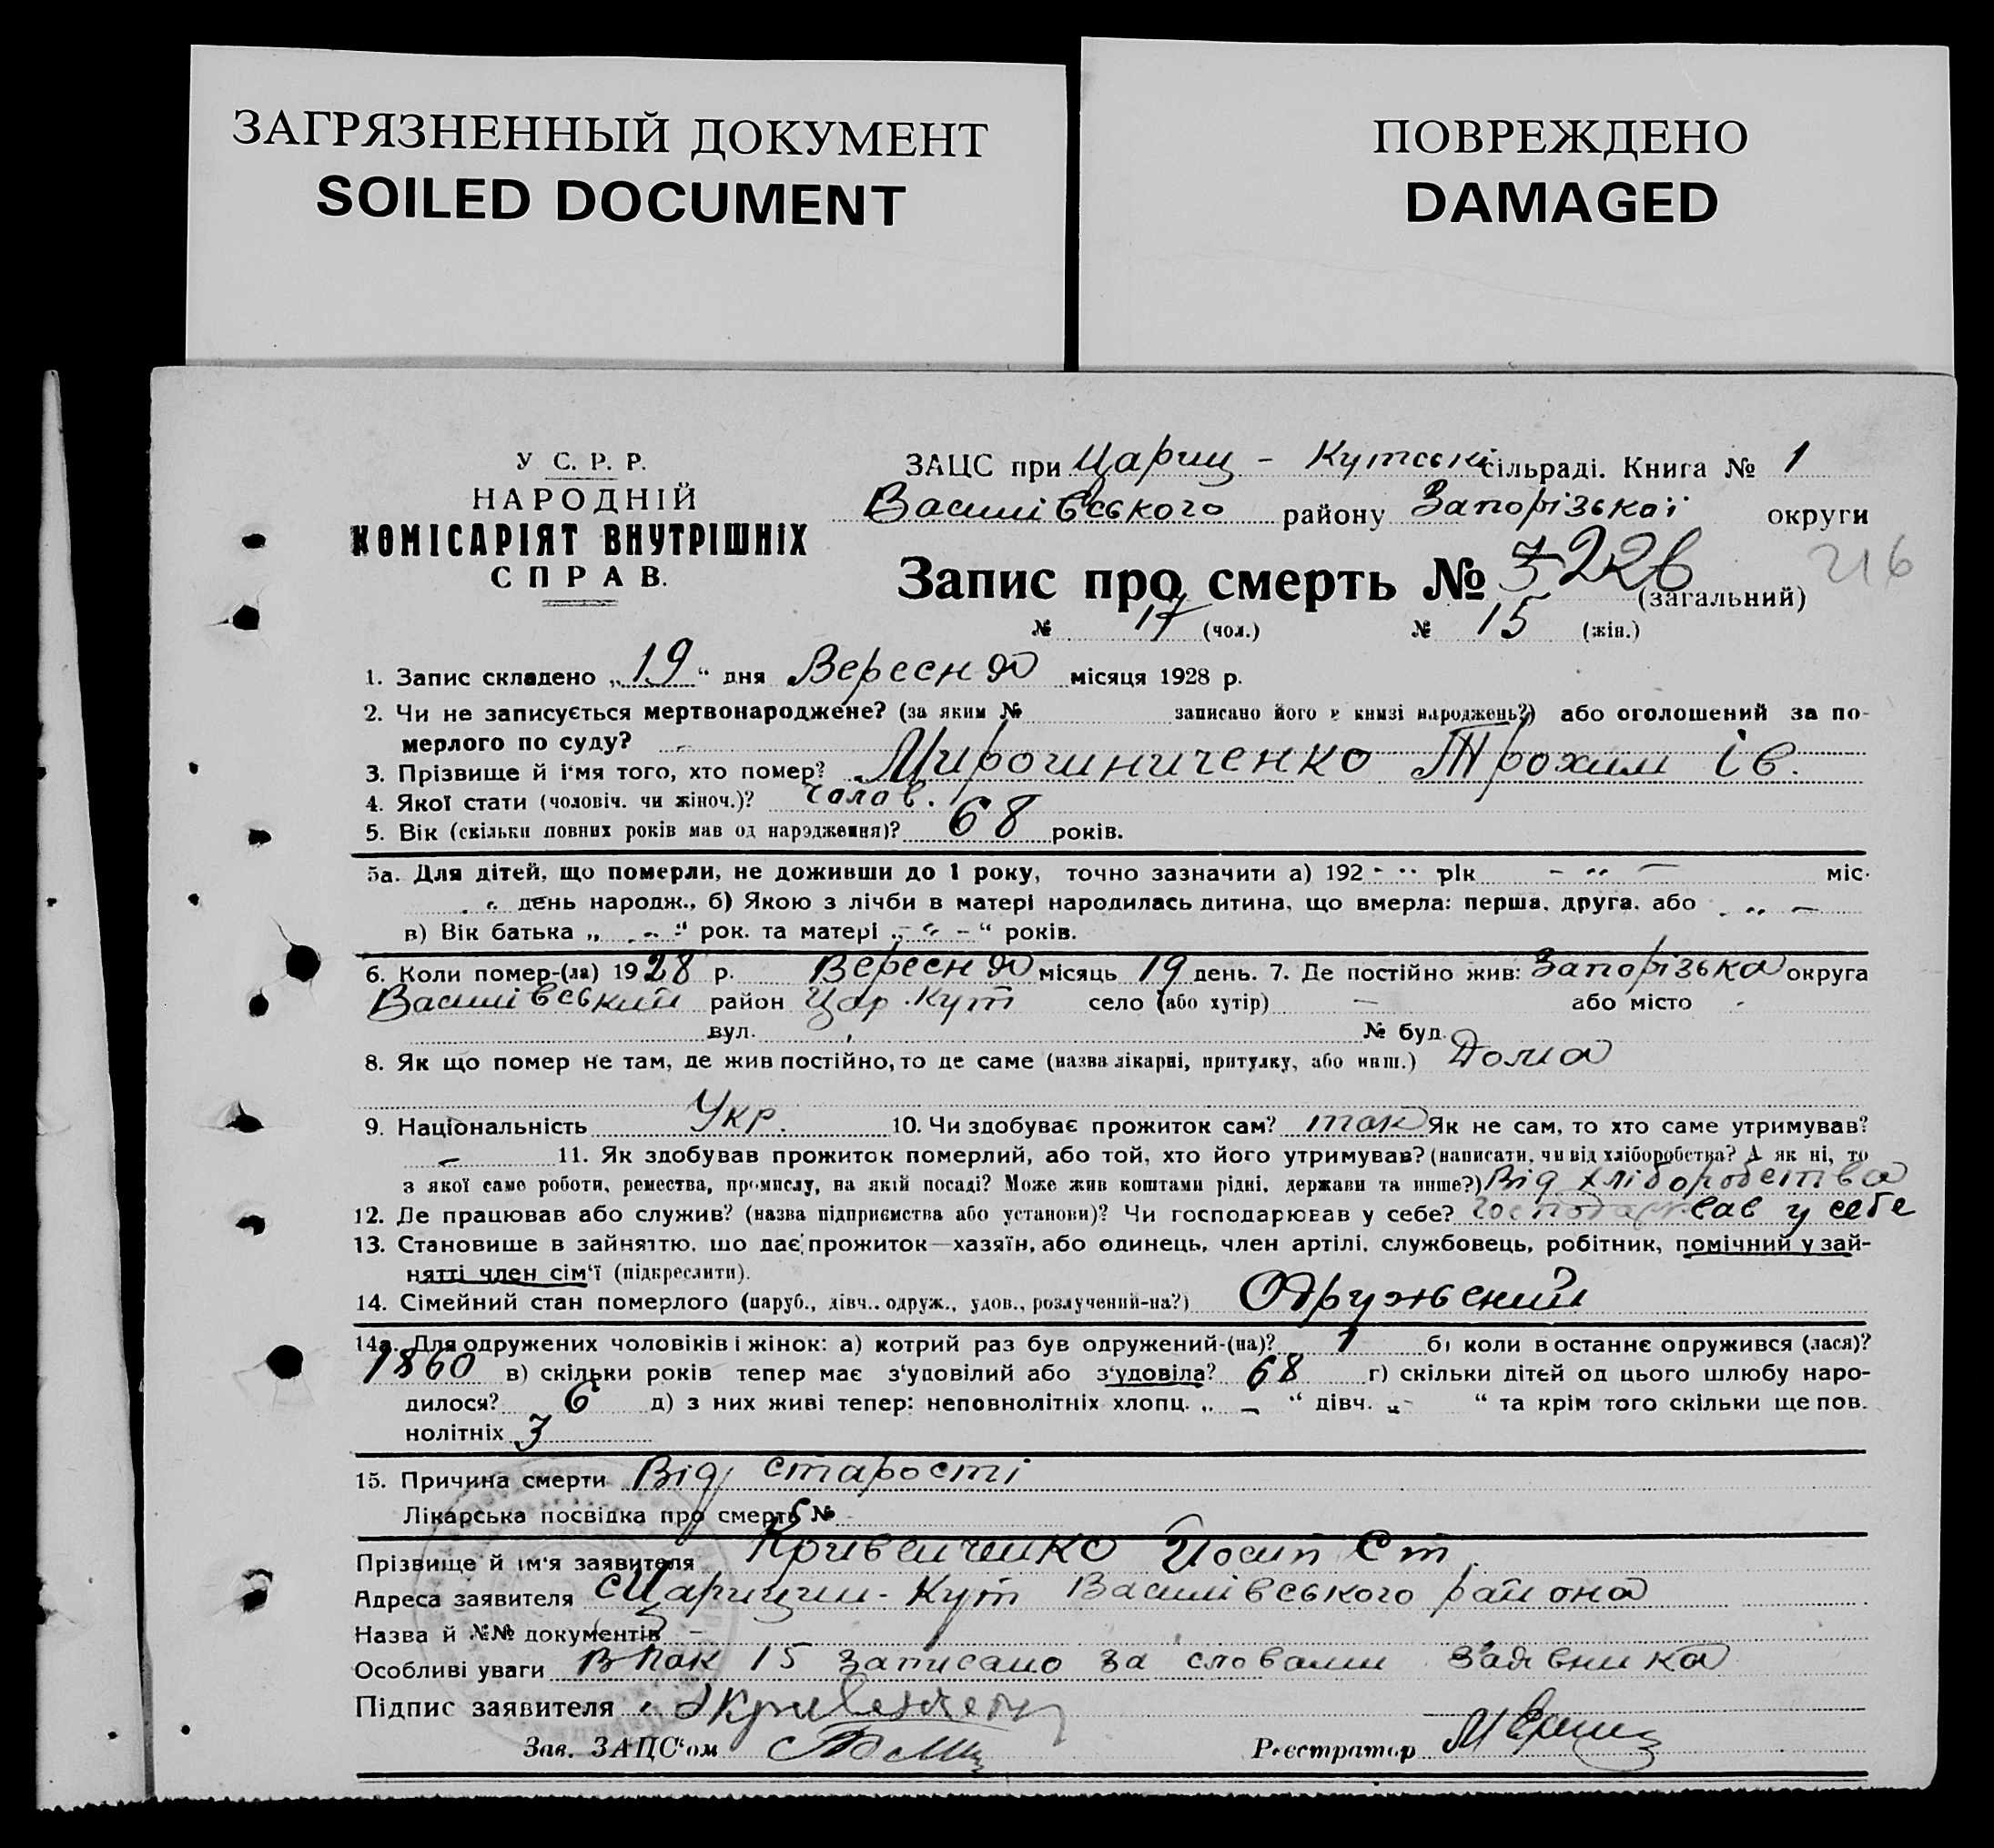 ЗАГРЯЗНЕННЫЙ ДОКУМЕНТ
SOILED DOCUMENT
ПОВРЕЖДЕНО
DAMAGED
У С. Р. Р.
НАРОДНІЙ
КОМІСАРІЯТ ВНУТРІШНІХ
СПРАВ.
ЗАЦС при Цариц - Кутські сільраді. Книга № 1
Василівського району Запорізької округи
Запис про смерть № 226 (загальний) 216
№ 17 (чол.) № 15 (жін.)
1. Запис складено „19“ дня Вересня місяця 1928 р.
2. Чи не записується мертвонароджене? (за яким № записано його в книзі народжень?) або оголошений за по-
мерлого по суду? -
3. Прізвище й і'мя того, хто помер? Мирошниченко Трохим Ів.
4. Якої стати (чоловіч. чи жіноч.)? Чолов.
5. Вік (скільки повних років мав од народження)? 68 років.
5а. Для дітей, що померли, не доживши до 1 року, точно зазначити а) 192 - „ рік - „ - міс.
„ день народж., б) Якою з лічби в матері народилась дитина, що вмерла: перша, друга, або „ -
в) Вік батька „ - “ рок. та матері „ - “ років.
6. Коли помер-(ла) 1928 р. Вересня місяць 19 день. 7. Де постійно жив: Запорізька округа
Василівський район Цар. Кут село (або хутір) - або місто -
вул. № буд.
8. Як що помер не там, де жив постійно, то де саме (назва лікарні, притулку, або инш.) Дома
9. Національність Укр. 10. Чи здобуває прожиток сам? так Як не сам, то хто саме утримував?
- 11. Як здобував прожиток померлий, або той, хто його утримував? (написати, чи від хліборобства? А як ні, то
з якої саме роботи, ремества, промислу, на якій посаді? Може жив коштами рідні, держави та инше?) Від хліборобства
12. Де працював або служив? (назва підприємства або установи)? Чи господарював у себе? Господарював у себе
13. Становище в зайняттю, що дає прожиток—хазяїн, або одинець, член артілі, службовець, робітник, помічний у зай-
нятті член сім'ї (підкреслити).
14. Сімейний стан померлого (паруб., дівч., одруж., удов., розлучений-на?) Одружений
14а. Для одружених чоловіків і жінок: а) котрий раз був одружений-(на)? 1 б) коли востаннє одружився (лася)?
1860 в) скільки років тепер має з'удовілий або з'удовіла? 68 г) скільки дітей од цього шлюбу наро-
дилося? 6 д) з них живі тепер: неповнолітніх хлопц. „ - “ дівч. „ - “ та крім того скільки ще пов.
нолітніх 3
15. Причина смерти Від старості
Лікарська посвідка про смерть № -
Прізвище й ім'я заявителя Йосип Ст.
Адреса заявителя с Царицин-Кут Василівського района
Назва й №№ документів -
Особливі уваги В пак 15 записано за словами заявника
Підпис заявителя
Зав. ЗАЦС'ом
Реєстратор